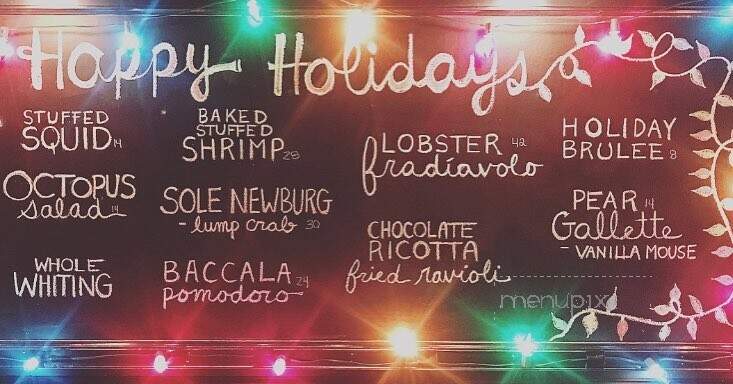 Happy Holidays
STUFFED
SQUID 14
OCTOPUS
salad 14
WHOLE
WHITING
BAKED
STUFFED
SHRIMP 28
SOLE NEWBURG
- lump crab 30
BACCALA 24
pomodoro
LOBSTER 42
fradiavolo
CHOCOLATE
RICOTTA
fried ravioli
HOLIDAY
BRULEE 8
PEAR 14
Gallette
- VANILLA MOUSE
menupix